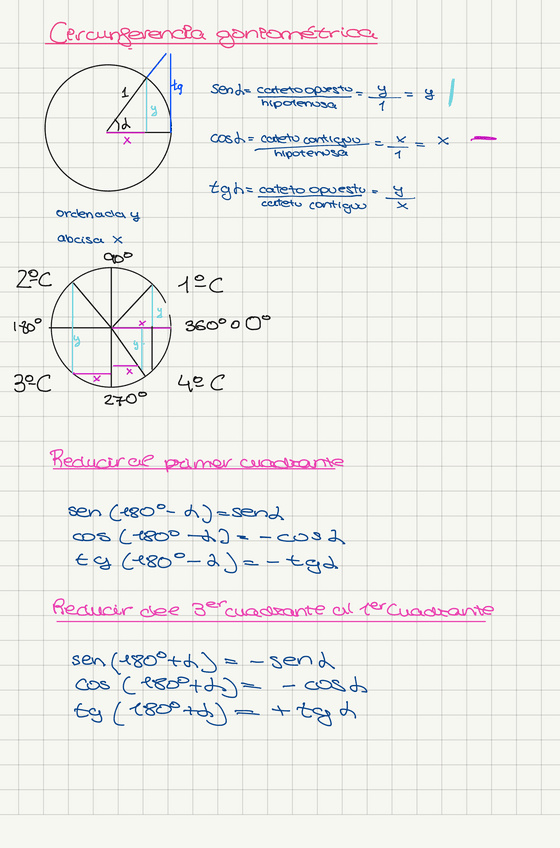 Circunferencia goniométrica
1
α
x
y
tg
senα = cateto opuesto / hipotenusa = y / 1 = y
cosα = cateto contiguo / hipotenusa = x / 1 = x
tgα = cateto opuesto / cateto contiguo = y / x
ordenada y
abcisa x
90º
2ºC
1ºC
180º
360º o 0º
x
y
y
y
x
x
3ºC
4ºC
270º
Reducir al primer cuadrante
sen (180º - α) = senα
cos (180º - α) = - cosα
tg (180º - α) = - tgα
Reducir del 3er cuadrante al 1er Cuadrante
sen (180º + α) = - senα
cos (180º + α) = - cosα
tg (180º + α) = + tg α